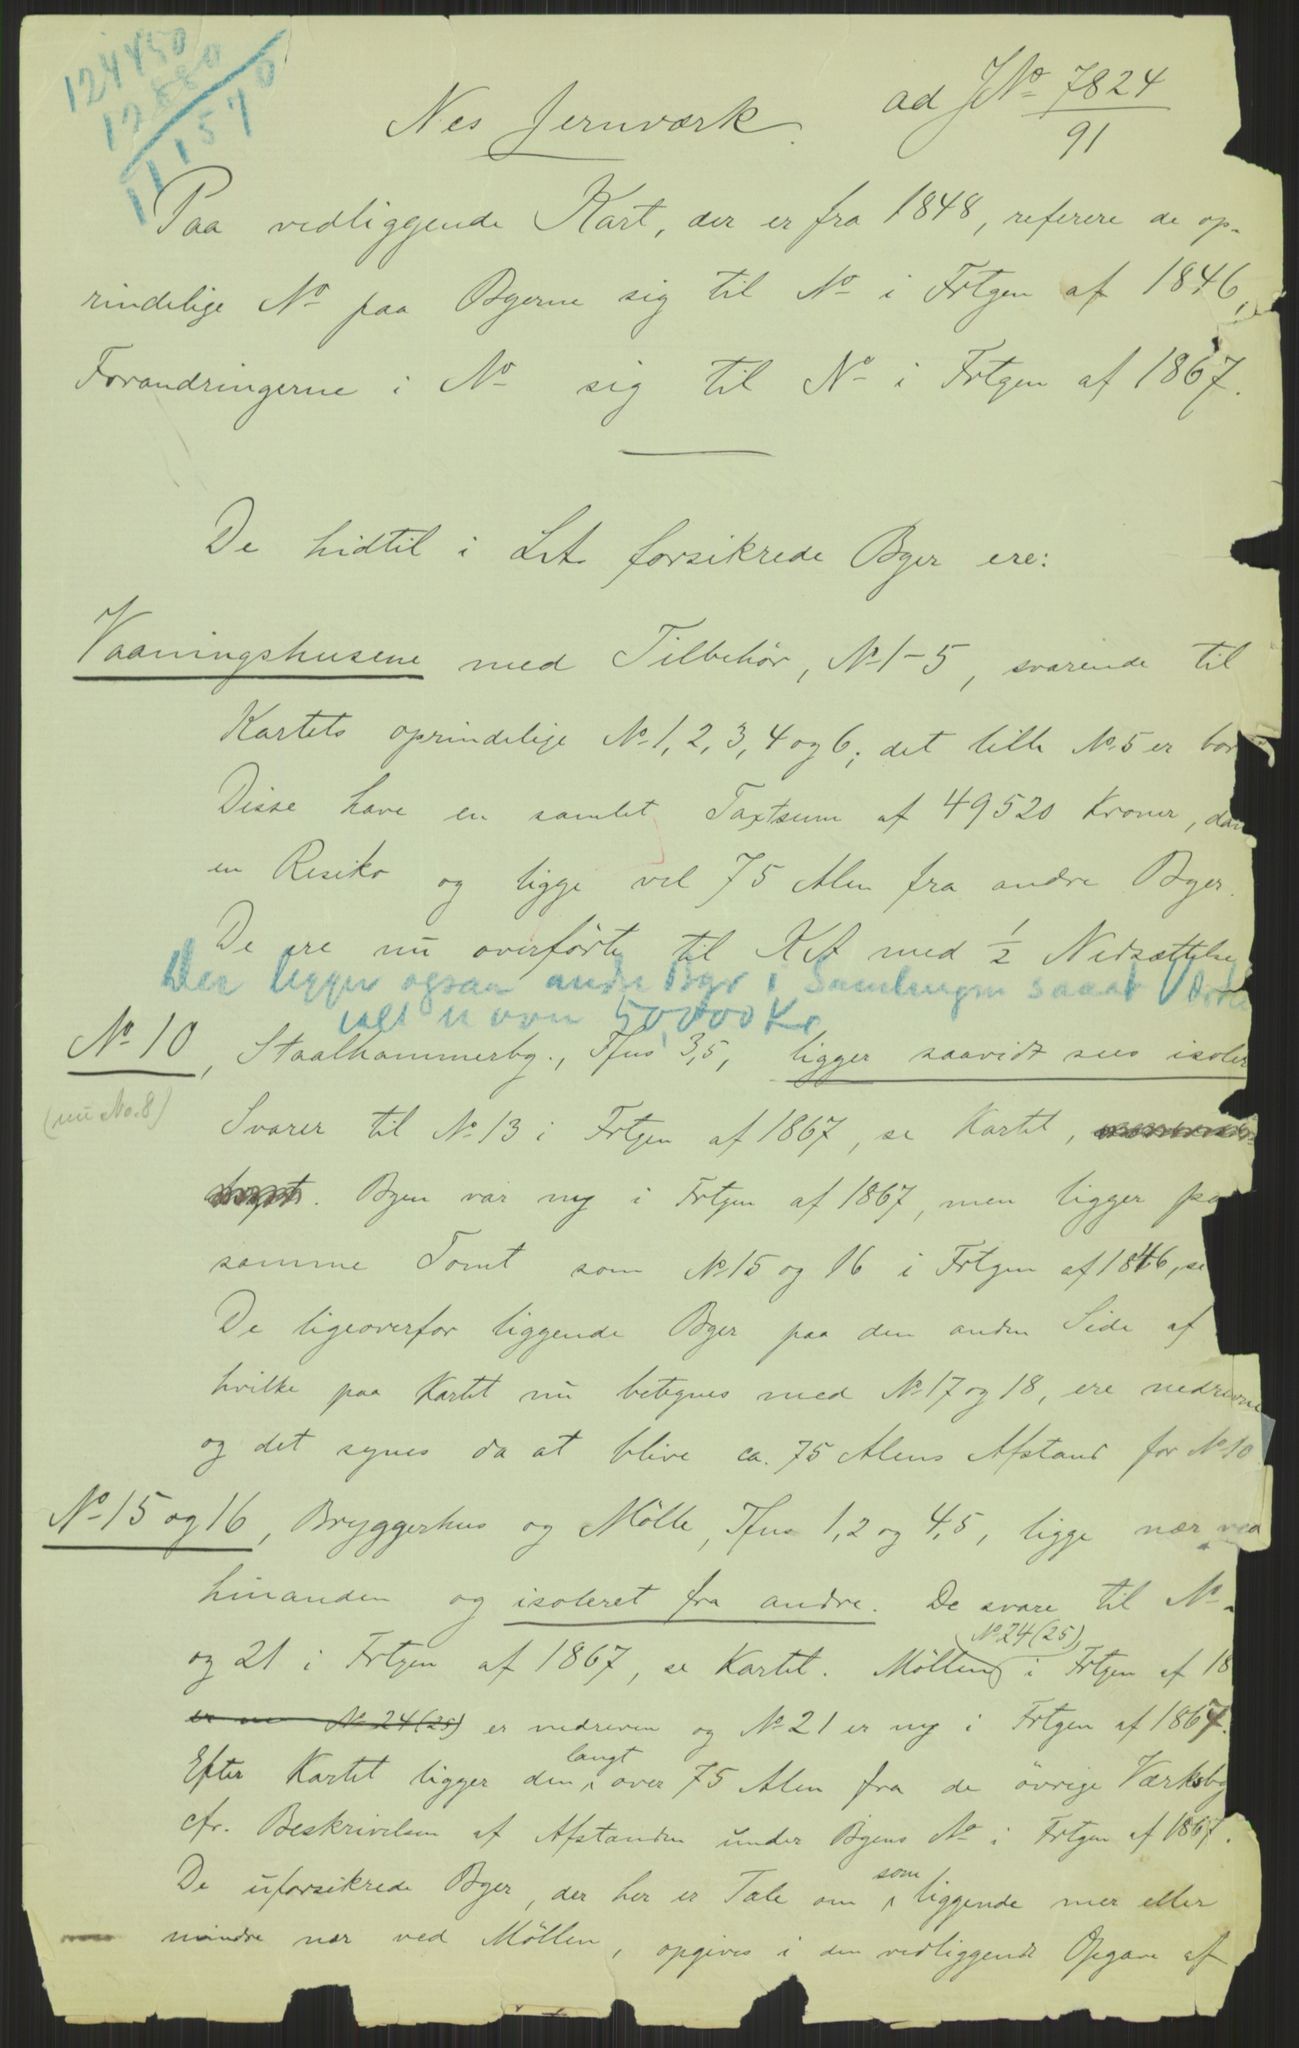 124450
12880
111570
Nes Jernværk.
ad JNo 7824
91
Paa vedliggende Kart, der er fra 1848, referere de op-
rindelige No paa Bgerne sig til No i Frtgen af 1846,
Forandringerne i No sig til No i Frtgen af 1867.
De hidtil i LA forsikrede Bger ere:
Vaaningshusene med Tilbehör, No 1-5, svarende til
Kartets oprindelige No 1, 2, 3, 4 og 6; det lille No 5 er bor
Disse have en samlet Taxtsum af 49520 Kroner, dan
en Resiko og ligge vel 75 Alen fra andre Bger.
De ere nu overførte til KA med 1/2 Nedsættelse
Der ligger ogsaa andre Bgr i Samlingen saaat
ialt er over 50,000 Kr
No 10, Staalhammerbg., Ffus 3,5, ligger saavidt sees isoler
(nu No. 8)
Svarer til No 13 i Frtgen af 1867, se Kartet,
Bgen var ny i Frtgen af 1867, men ligger pa
samme Tomt som No 15 og 16 i Frtgen af 1846, se
De ligeoverfor liggende Bger paa den anden Side af
hvilke paa Kartet nu betegnes med No 17 og 18, ere nedrevne
og det synes da at blive ca. 75 Alens Afstand for No 10
No 15 og 16, Bryggerhus og Mölle, Ffus 1,2 og 4,5, ligge nær ved
hinanden og isoleret fra andre. De svare til No
No 24 (25)
og 21 i Frtgen af 1867, se Kartet. Möllen i Frtgen af 18
No 24 (25) er nedreven og No 21 er ny i Frtgen af 1867.
langt
Efter Kartet ligger den over 75 Alen fra de övrige Værksbg
cfr. Beskrivelsen af Afstanden under Bgens No i Frtgen af 1867.
som
De uforsikrede Bger, der her er Tale om liggende mer eller
mindre nær ved Möllen, opgives i den vedliggende Opgave af